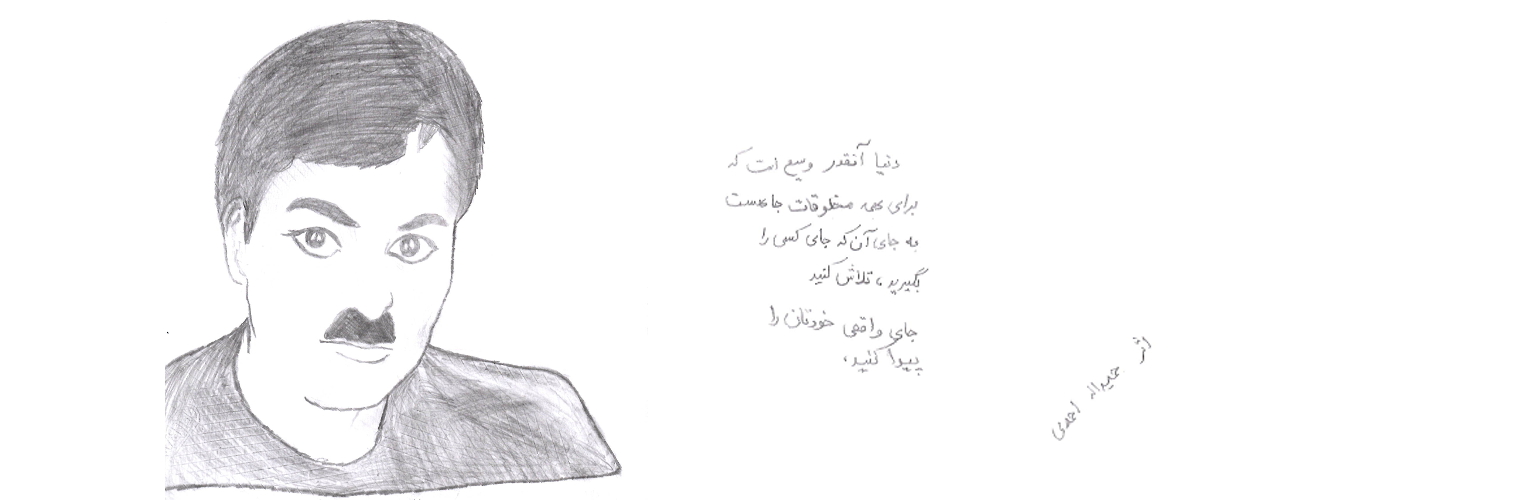 دنیا آنقدر وسیع است که
برای همه مخلوقات جا هست
به جای آن که جای کسی را
بگیرید، تلاش کنید
جای واقعی خودتان را
پیدا کنید،
اثر حمیداله احمدی